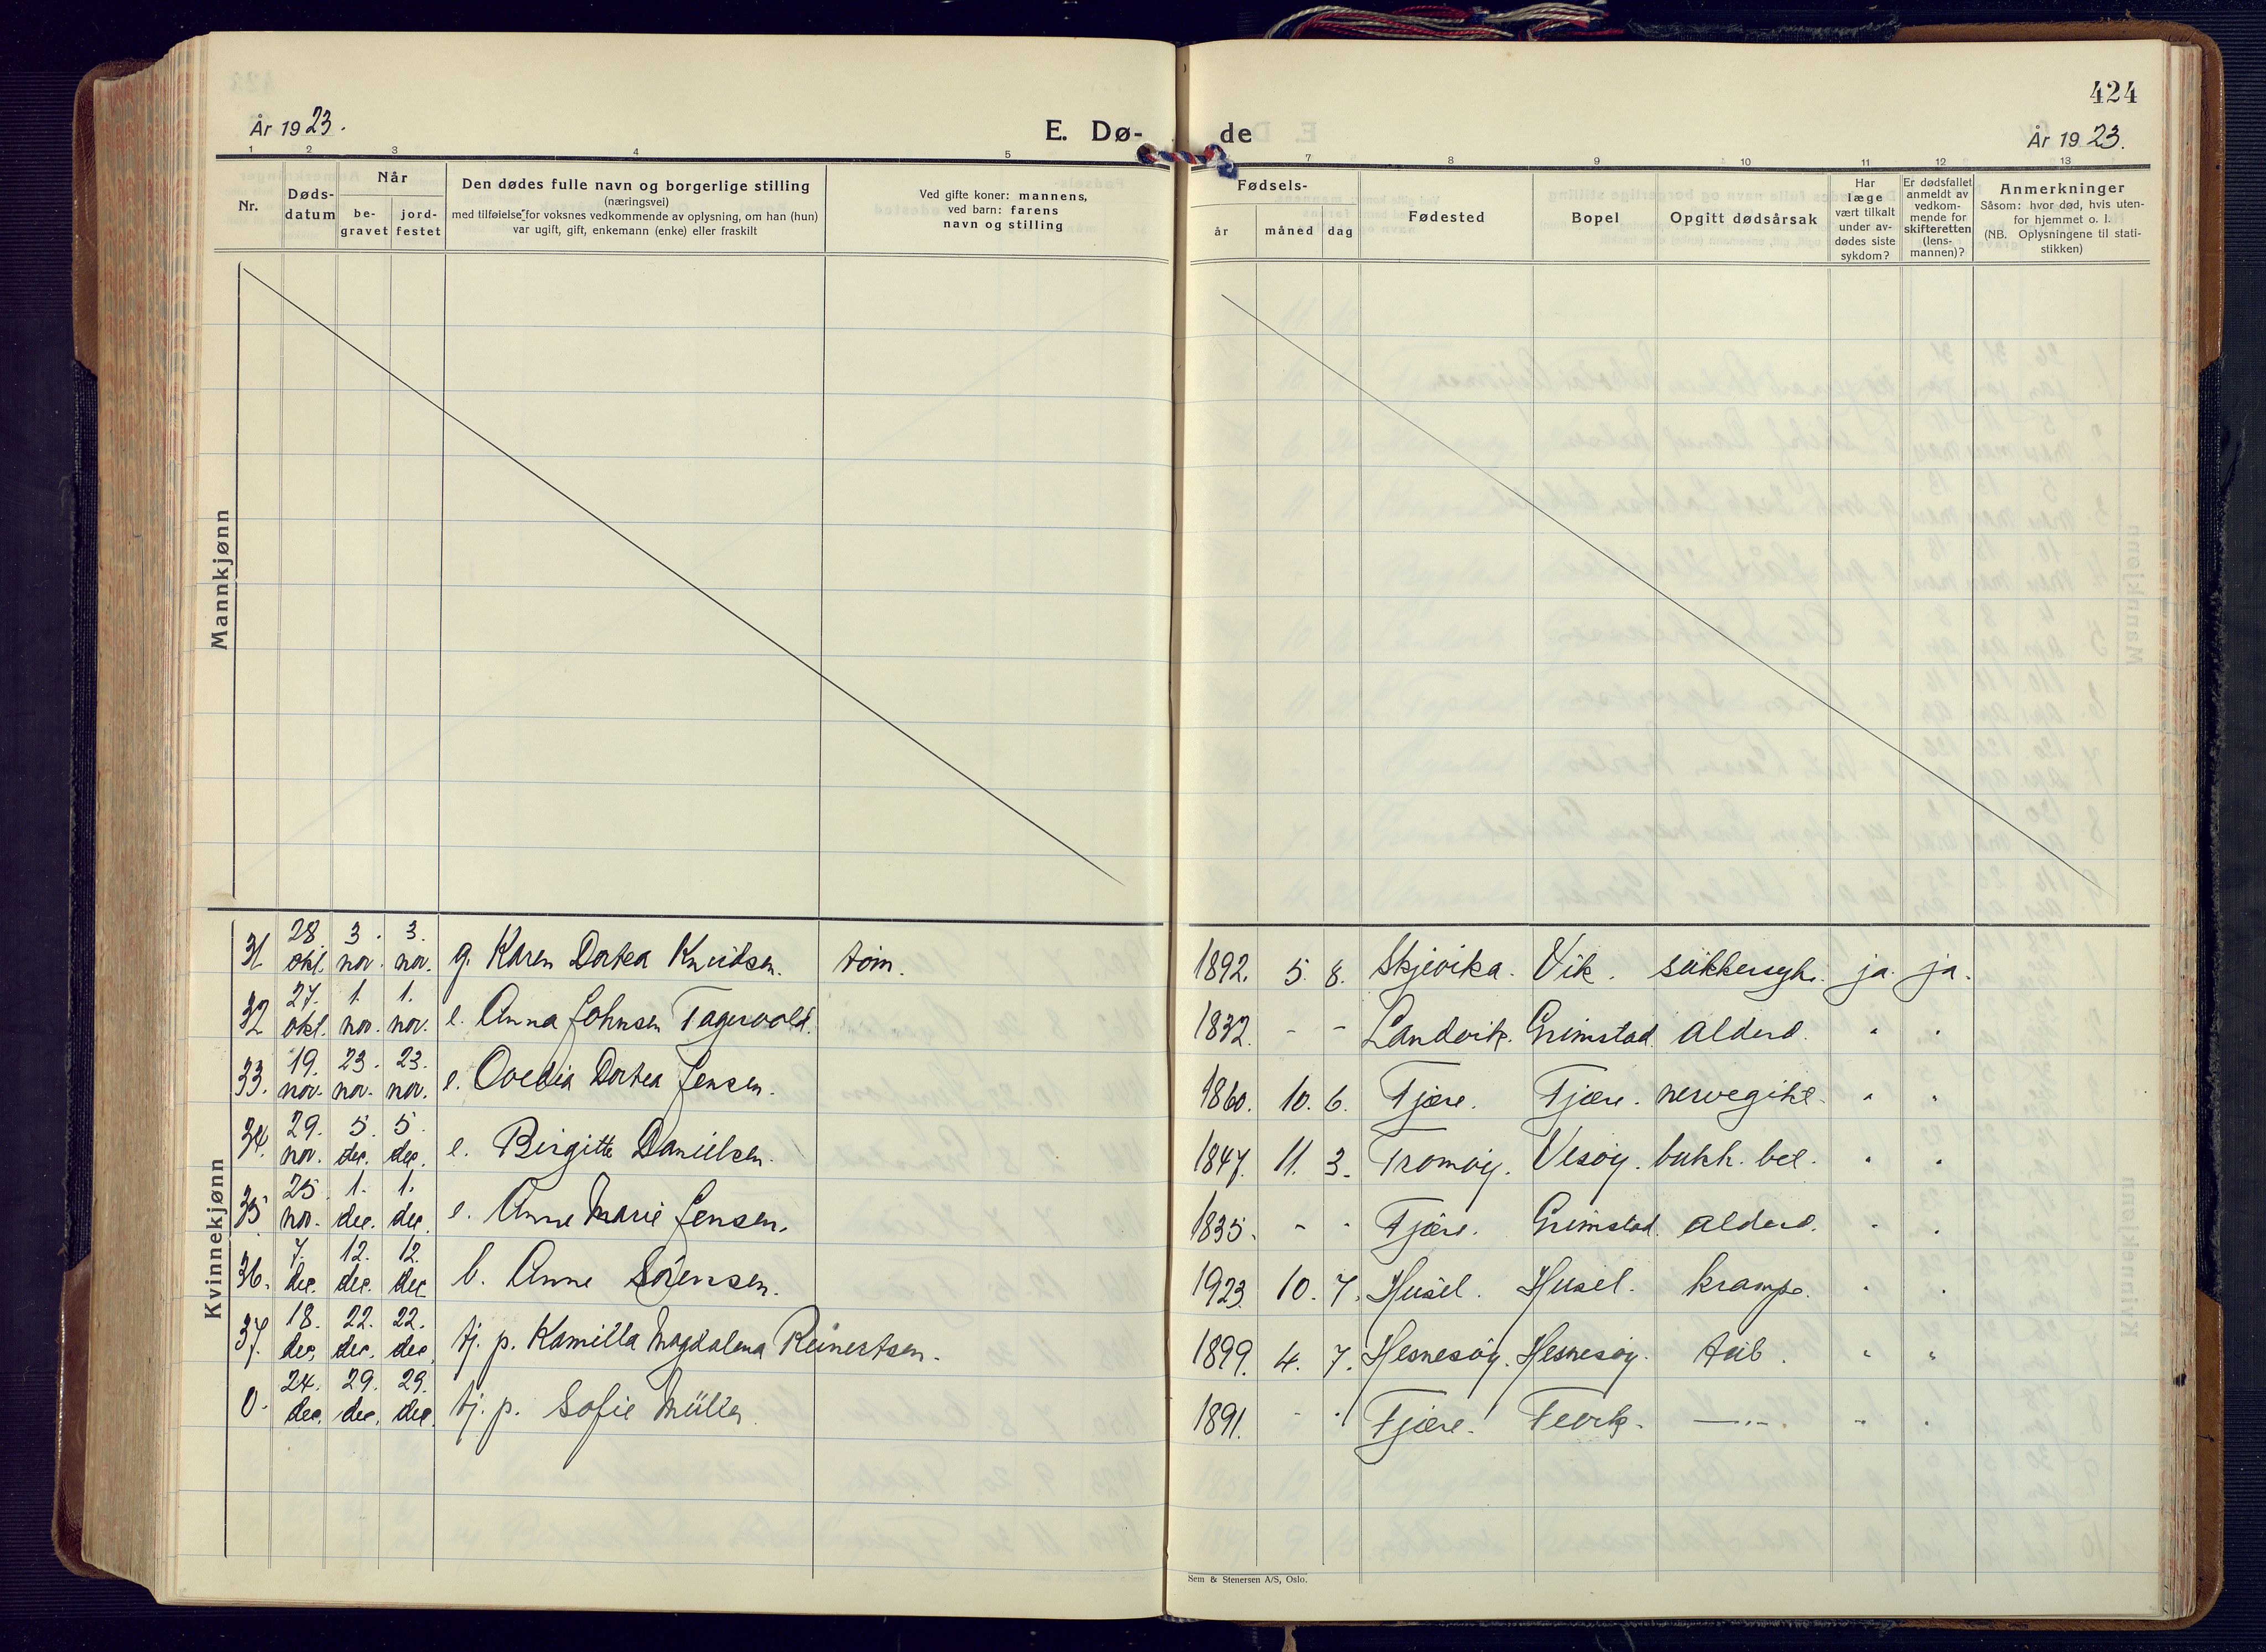 424
År 1923.
E. Dø-
de
År 1923.
1 2 3 4 5 7 8 9 10 11 12 13
Nr.
Døds-
datum
Når
be-
gravet
jord-
festet
Den dødes fulle navn og borgerlige stilling
(næringsvei)
med tilføielse for voksnes vedkommende av oplysning, om han (hun)
var ugift, gift, enkemann (enke) eller fraskilt
Ved gifte koner: mannens,
ved barn: farens
navn og stilling
Fødsels-
år måned dag
Fødested
Bopel
Opgitt dødsårsak
Har
læge
vært tilkalt
under av-
dødes siste
sykdom?
Er dødsfallet
anmeldt av
vedkom-
mende for
skifteretten
(lens-
mannen)?
Anmerkninger
Såsom: hvor død, hvis uten-
for hjemmet o. l.
(NB. Oplysningene til stati-
stikken)
Mannkjønn
Kvinnekjønn
31 28. okt. 3. nov. 3. nov. g. Karen Dortea Knudsen. tøm. 1892. 5. 8. Skjevika. Vik. sukkersyk. ja. ja.
32 27. okt. 1. nov. 1. nov. e. Anna Johnsen Tagevold. 1832. - - Landvik. Grimstad. alderd. " "
33. 19. nov. 23. nov. 23. nov. e. Ovedia Dortea Jensen. 1860. 10. 6. Fjære. Fjære. " "
34. 29. nov. 5. dec. 5. dec. e. Birgitte Danielsen. 1847. 11. 3. Tromøy. Vesøy. bukh. bet. " "
35 25. nov. 1. dec. 1. dec. e. Anne Marie Jensen. 1835. - - Fjære. Grimstad. alderd. " "
36. 7. dec. 12. dec. 12. dec. b. Anne Sørensen. 1923. 10. 7. Husel. Husel. krampe. " "
37. 18. dec. 22. dec. 22. dec. tj. p. Kamilla Magdalena Reinertsen. 1899. 4. 7. Hesnesøy. Hesnesøy. tub. " "
0. 24. dec. 29. dec. 29. dec. tj. p. Sofie Müller. 1891. - - Fjære. Fevik. —"—. " "
Sem & Stenersen A/S, Oslo.